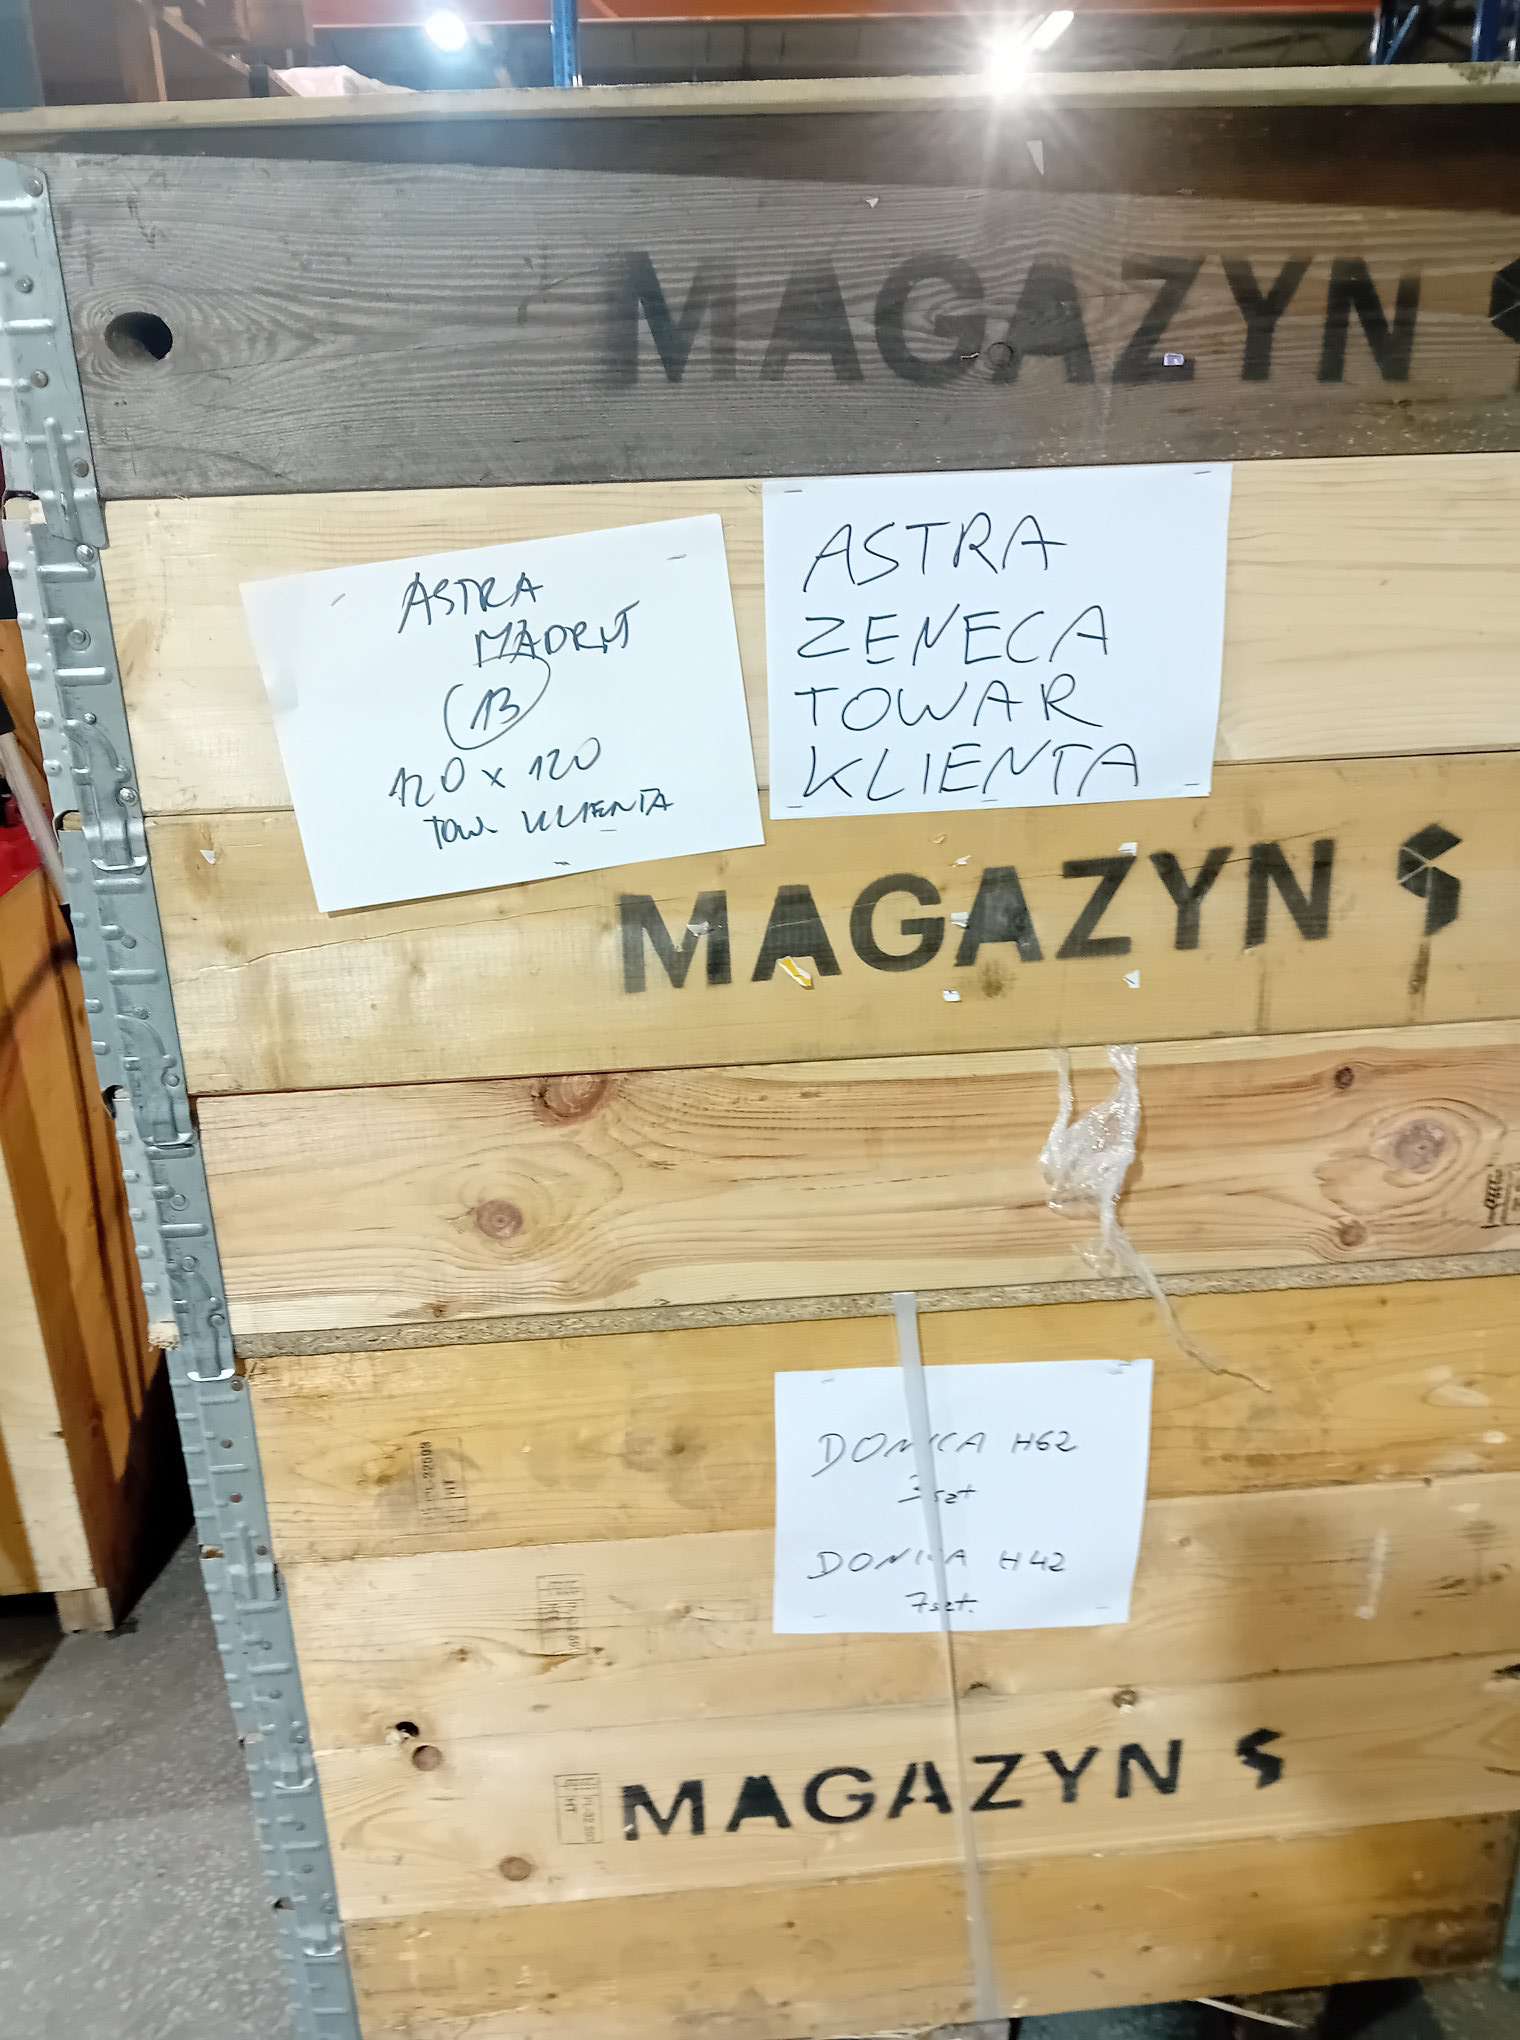 MAGAZYN
ASTRA
MADRYT
13
120 x 120
TOW. KLIENTA
ASTRA
ZENECA
TOWAR
KLIENTA
MAGAZYN S
DONICA H62
3 szt
DONICA H42
7 szt.
HT
MAGAZYN S
HT